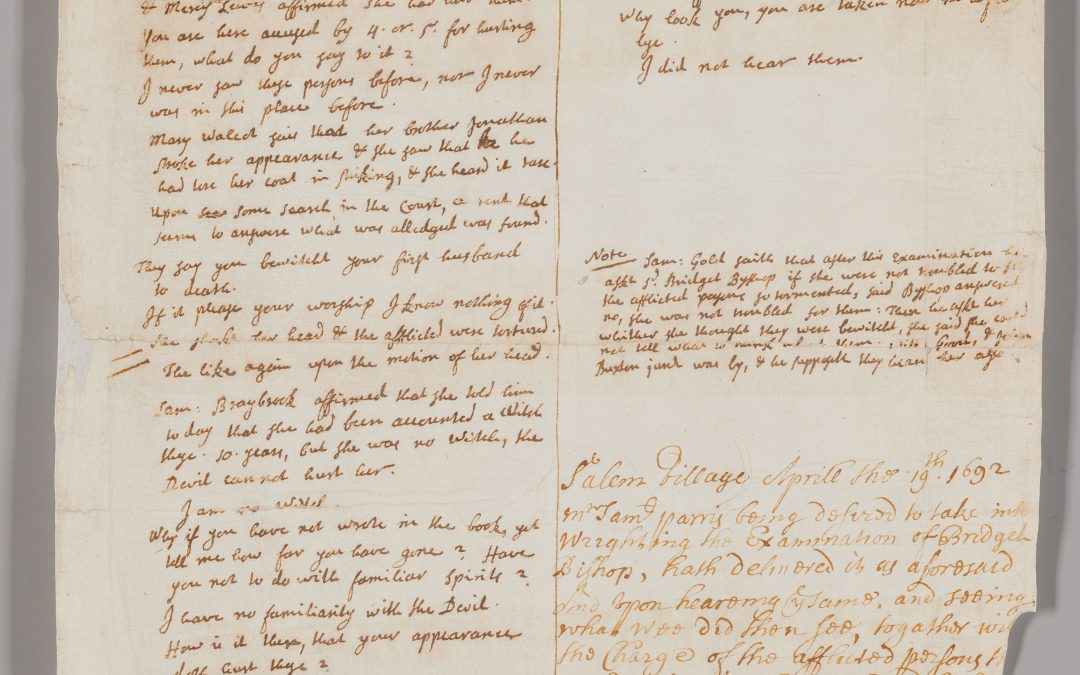 & Mercy Lewis affirmed she had
You are here accused by 4. or. 5. for hurting
them, what do you say to it?
I never saw these persons before, nor I never
was in this place before.
Mary Walcot said that her brother Jonathan
stroke her appearance & she saw that he
had tore her coat in striking, & she heard it tare.
Upon some search in the Court, a rent that
seems to answere what was alledged was found.
They say you bewitcht your first husband
to death.
If it please your worship I know nothing of it.
She shake her head & the afflicted were tortured.
The like again upon the motion of her head.
Sam: Braybrook affirmed that she told him
today that she had been accounted a Witch
these .10. years, but she was no Witch, the
Devil cannot hurt her.
I am no witch
Why if you have not wrote in the book, yet
tell me how far you have gone? Have
you not to do with familiar Spirits?
I have no familiarity with the Devil.
How is it then, that your appearance
doth hurt these?
Why look you, you are taken now in a
lye.
I did not hear them.
Note Sam: Gold saith that after this Examination he
askt sd. Bridget Byshop if she were not troubled to see
the afflicted persons so tormented, said Byshop answered
no, she was not troubled for them: Then he askt her
whither she thought they were bewitcht, she said she could
not tell what to think about them. Will Good, &
Buxton junr was by, & he supposeth they heard her also.
Salem Village Aprill the .19th. 1692
mr Saml parris being desired to take into
wrighting the Examination of Bridget
Bishop, hath delivered it as aforesaid
And upon heareing ye same, and seeing
what wee did then see, together with
the Charge of the afflicted persons